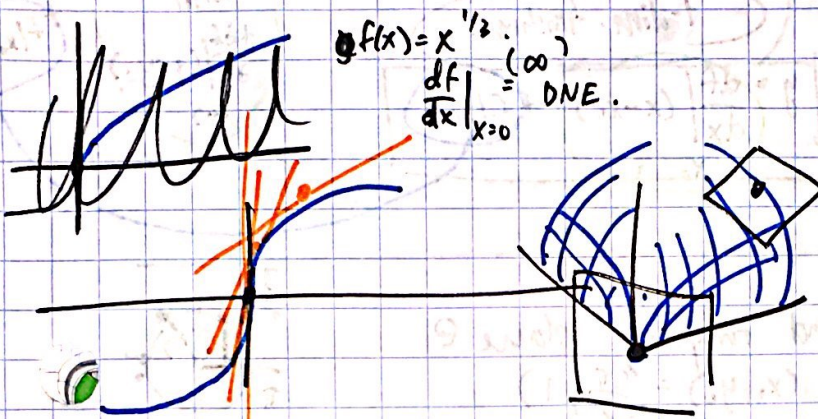 f(x) = x^{1/3}.
df/dx |_{x=0} = (∞) DNE.